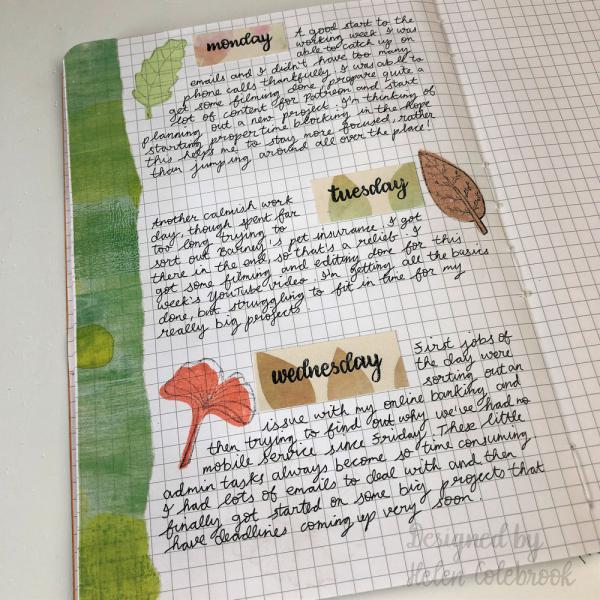 monday
A good start to the
working week. I was
able to catch up on
emails and I didn't have too many
phone calls thankfully. I was able to
get some filming done, prepare quite a
lot of content for Patreon and start
planning out a new project. I'm thinking of
starting proper time blocking in the hope
this helps me to stay more focused, rather
than jumping around all over the place!
tuesday
Another calmish work
day, though spent far
too long trying to
sort out Barney's pet insurance! I got
there in the end, so that's a relief. I
got some filming and editing done for this
week's YouTube video. I'm getting all the basics
done, but struggling to fit in time for my
really big projects.
wednesday
First jobs of
the day were
sorting out an
issue with my online banking and
then trying to find out why we've had no
mobile service since Friday. These little
admin tasks always become so time consuming
I had lots of emails to deal with and then
finally got started on some big projects that
have deadlines coming up very soon.
Designed by
Helen Colebrook